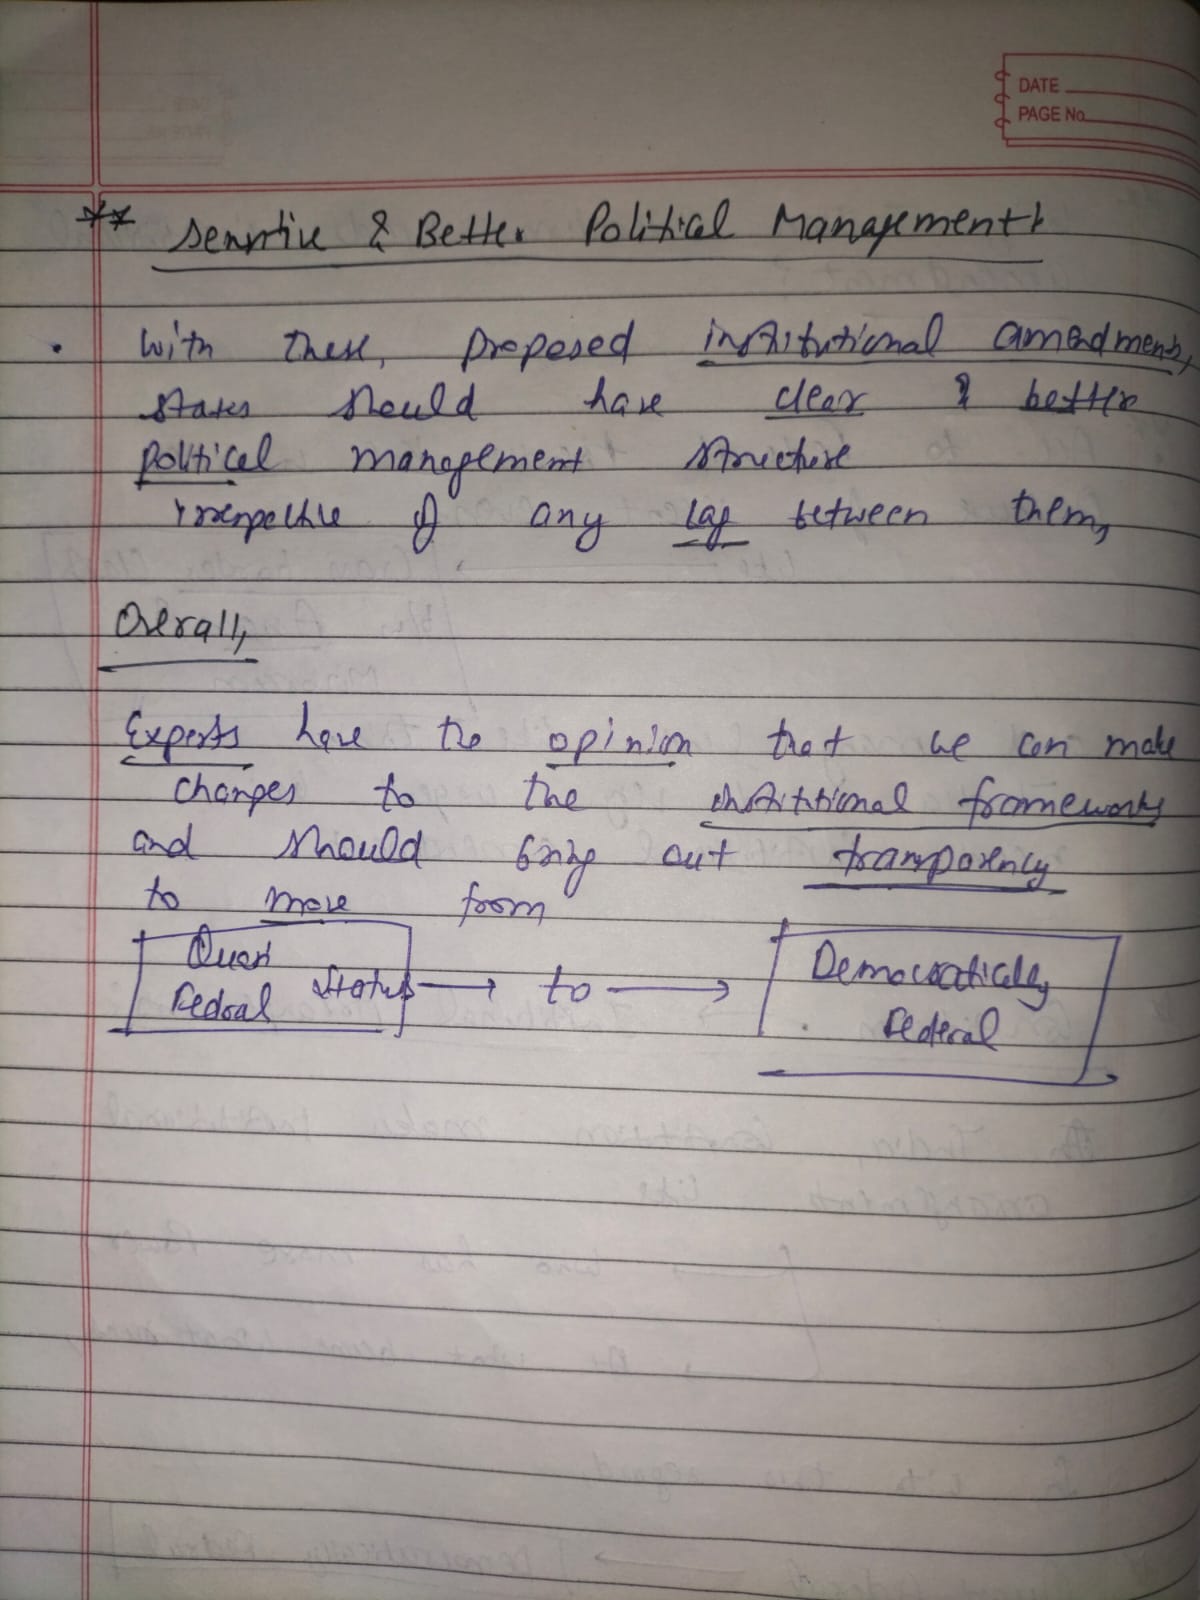 DATE
PAGE No.
** Sensitive & Better Political Management
• With these, proposed institutional amendments,
states should have clear & better
political management structure
irrespective of any lag between them,
Overall,
Experts have the opinion that we can make
changes to the institutional frameworks
and should bring out transparency
to move from
Quasi Federal Status → to → Democratically Federal